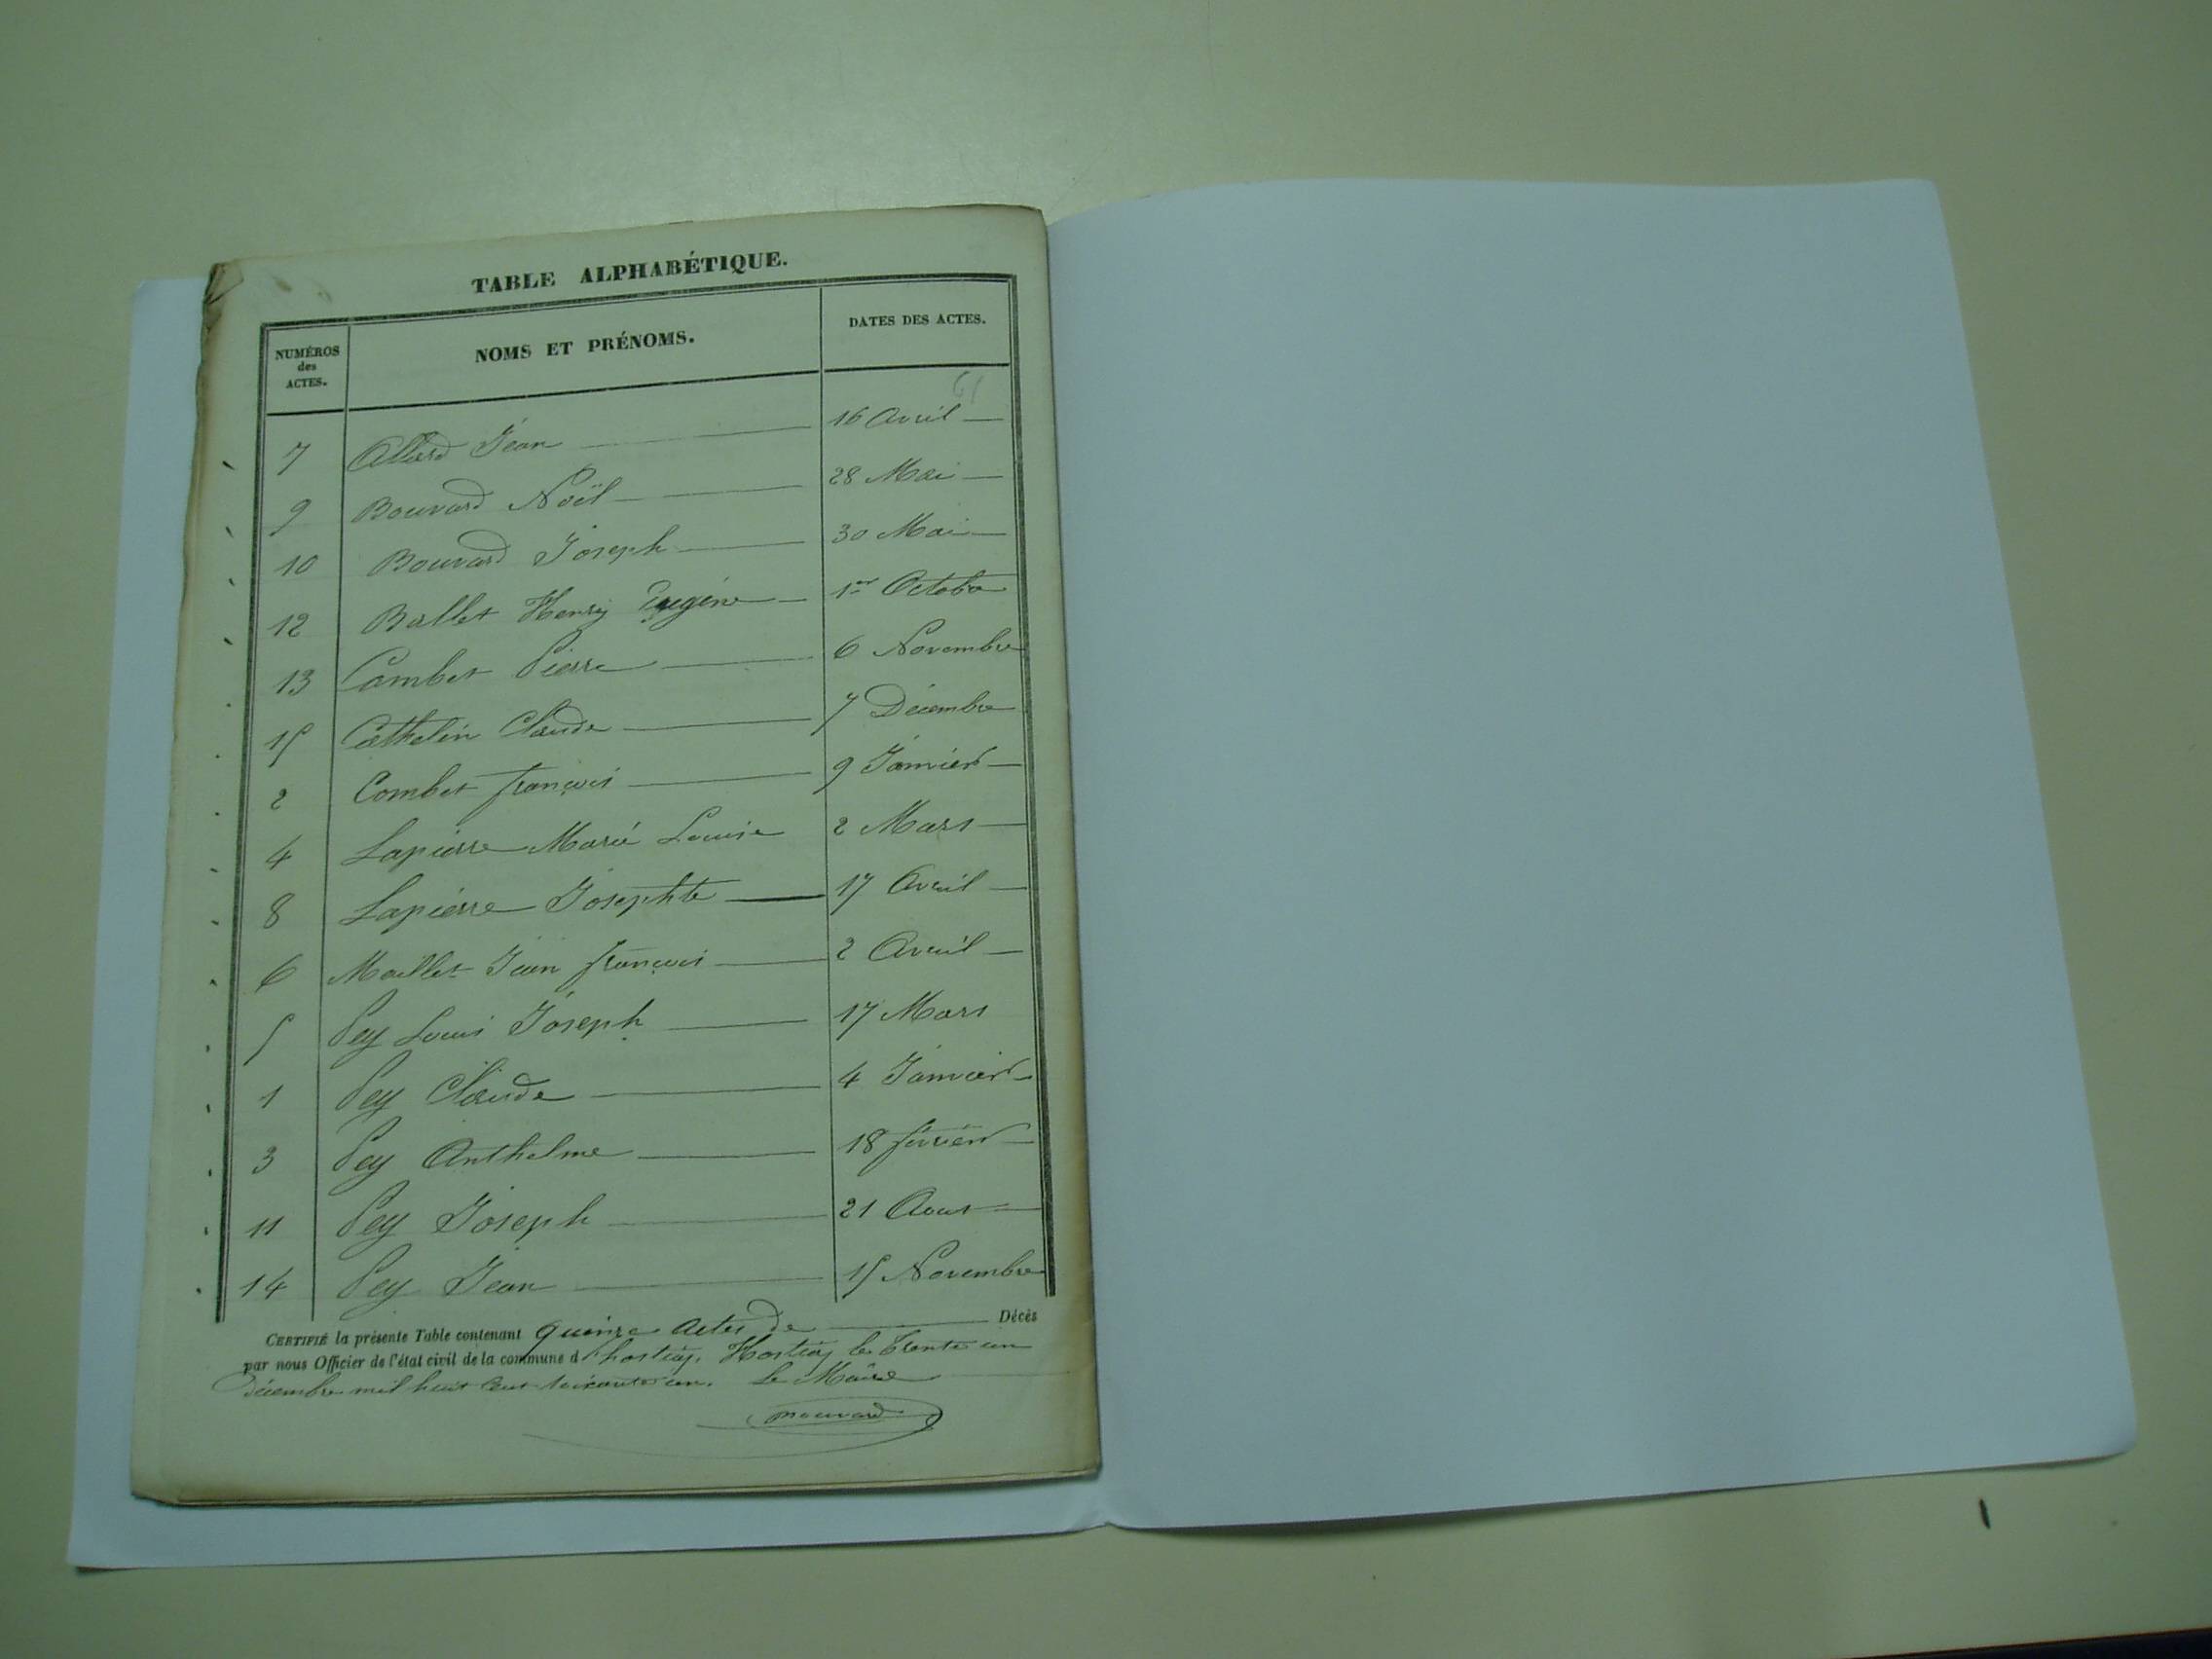 TABLE ALPHABÉTIQUE.
NUMÉROS des ACTES.
NOMS ET PRÉNOMS.
DATES DES ACTES.
61
7 Allard Jean 16 Avril
9 Bouvard Noël 28 Mai
10 Bouvard Joseph 30 Mai
12 Ballet Henry Eugène 1er Octobre
13 Combet Pierre 6 Novembre
15 Cathelin Claude 7 Décembre
2 Combet françois 9 Janvier
4 Lapierre Marie Louise 2 Mars
8 Lapierre Josephte 17 Avril
6 Maillet Jean françois 2 Avril
5 Pey Louis Joseph 17 Mars
1 Pey Claude 4 Janvier
3 Pey Anthelme 18 février
11 Pey Joseph 21 Aout
14 Pey Jean 15 Novembre
CERTIFIÉ la présente Table contenant quinze Actes de Décès
par nous Officier de l'état civil de la commune d'hostiaz. Hostiaz le trente un
Décembre mil huit cent soixante un. Le Maire
Bouvard